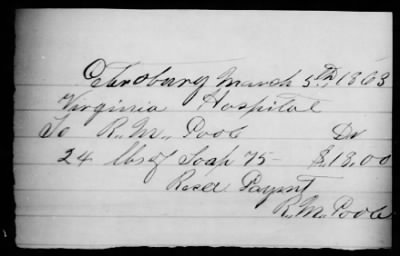 Petersburg March 5th, 1863
Virginia Hospital
To R. M. Poole Dr
24 lbs of Soap 75 - $18,00
Recd Paymt
R. M. Poole